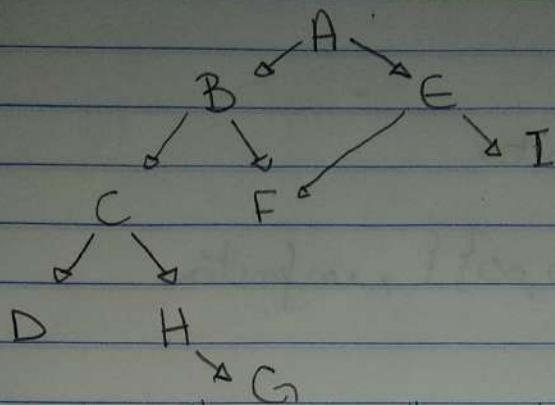 A
B E
I
C F
D H
G